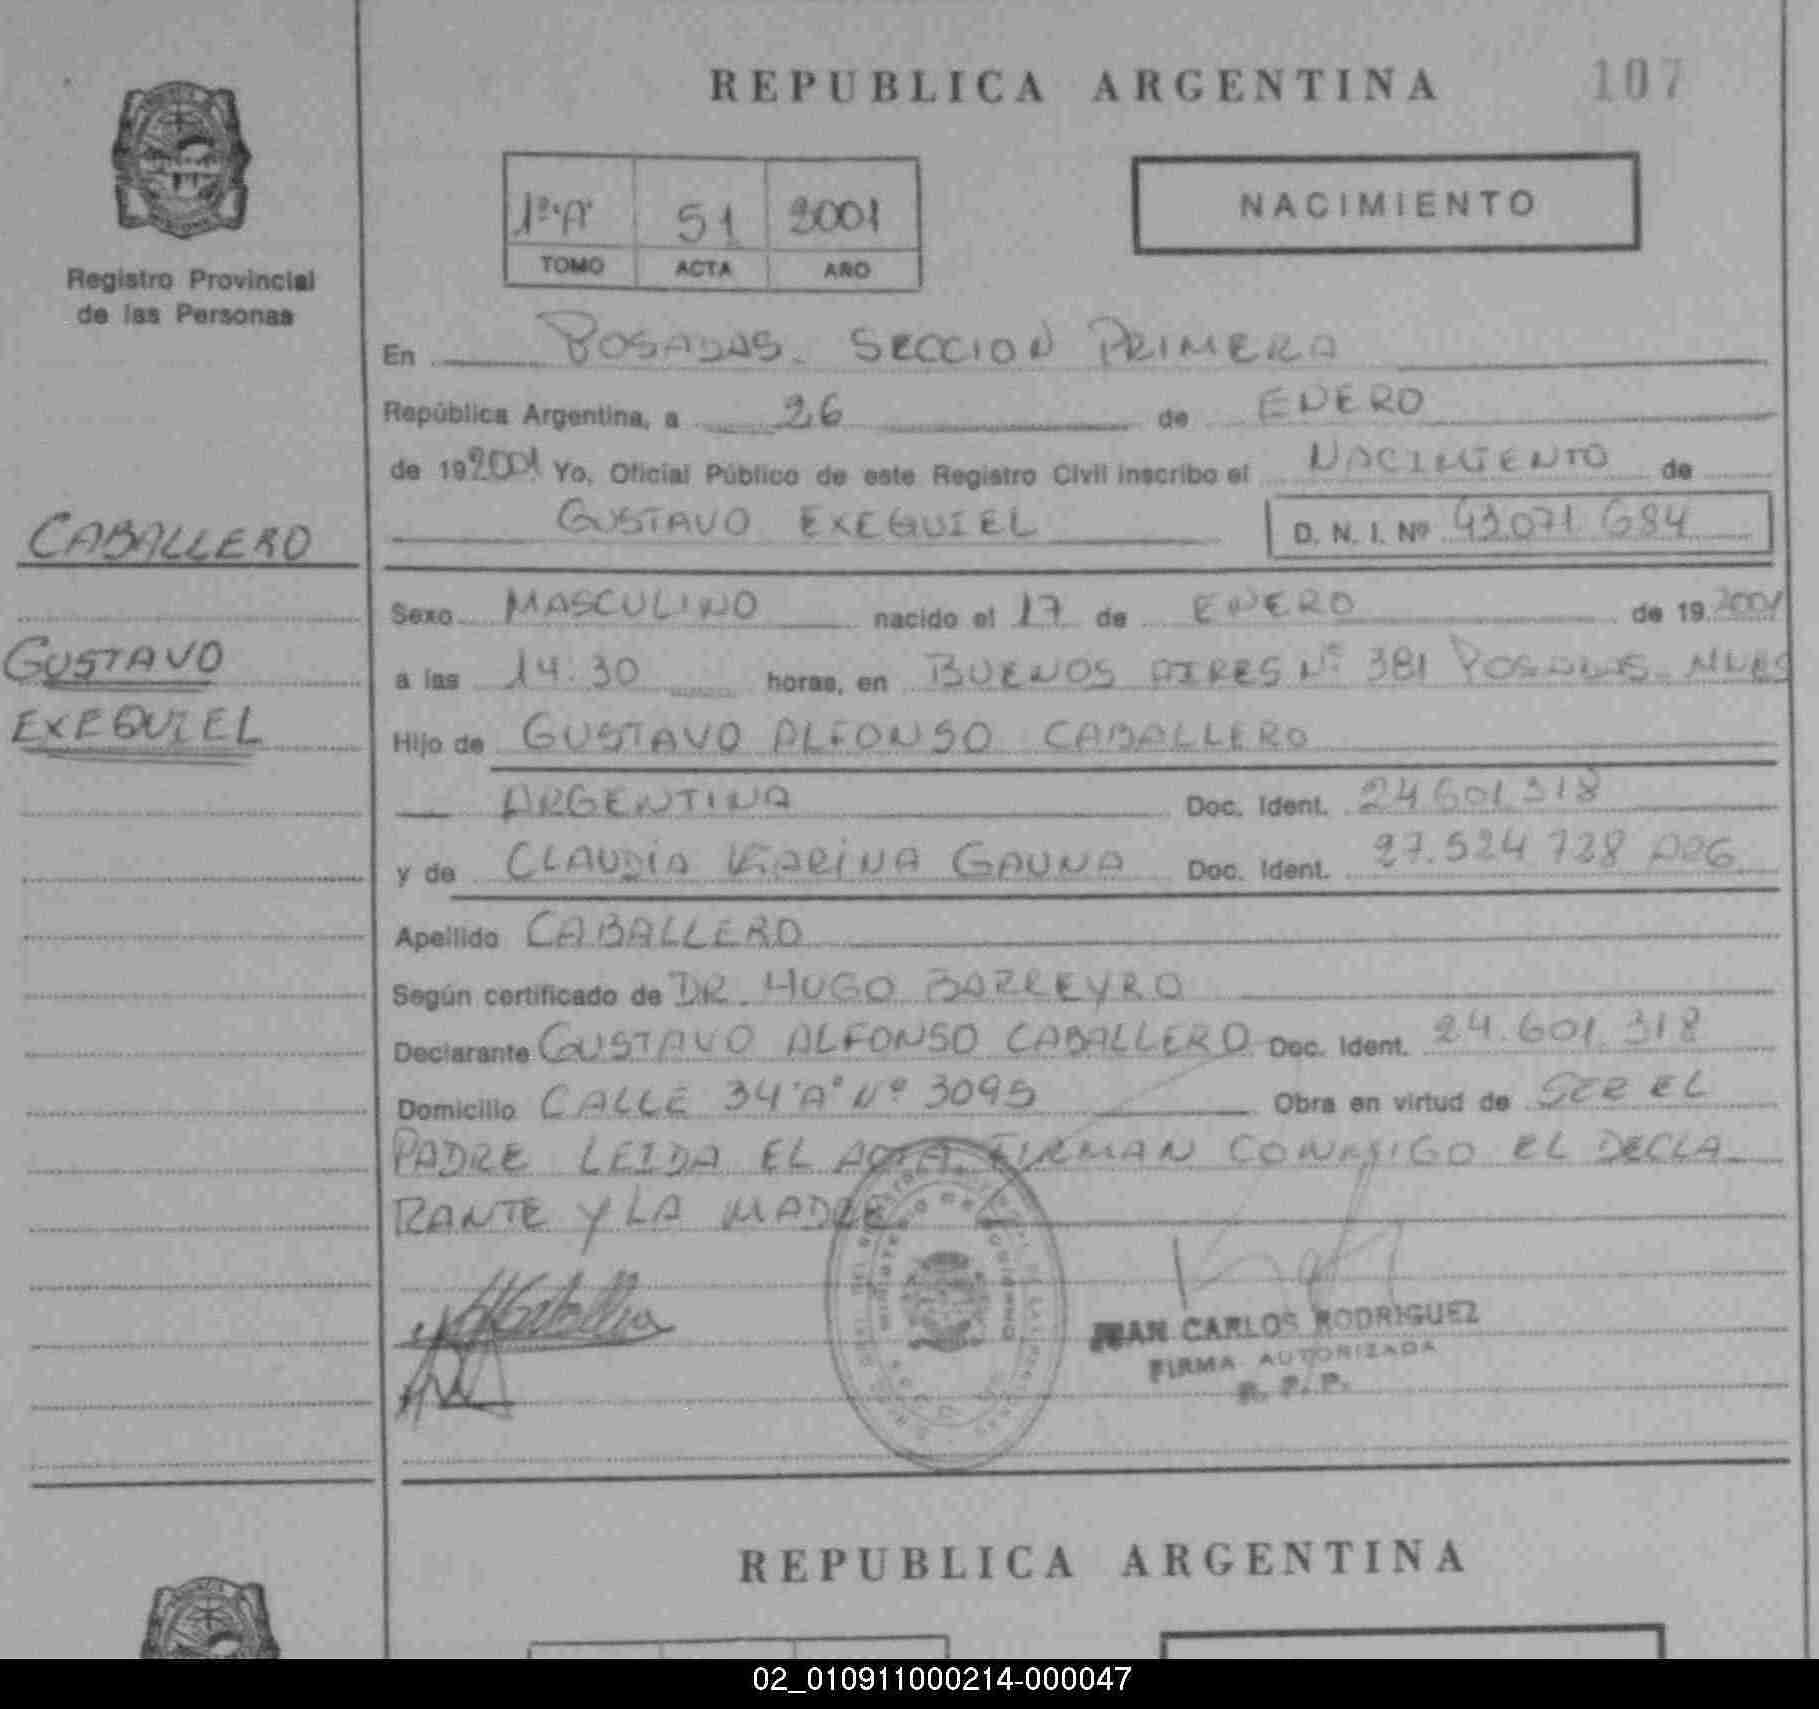 REPUBLICA ARGENTINA 107
1º "A" 51 2001
TOMO ACTA AÑO
NACIMIENTO
Registro Provincial
de las Personas
En POSADAS - SECCION PRIMERA
República Argentina, a 26 de ENERO
de 192001 Yo, Oficial Público de este Registro Civil inscribo el NACIMIENTO de
GUSTAVO EXEQUIEL D. N. I. Nº 43.071.684
CABALLERO
GUSTAVO
EXEQUIEL
Sexo MASCULINO nacido el 17 de ENERO de 19 2001
a las 14:30 horas, en BUENOS AIRES Nº 381 POSADAS - MNES
Hijo de GUSTAVO ALFONSO CABALLERO
ARGENTINA Doc. Ident. 24.601.318
y de CLAUDIA KARINA GAUNA Doc. Ident. 27.524.728 ARG
Apellido CABALLERO
Según certificado de DR. HUGO BARREYRO
Declarante GUSTAVO ALFONSO CABALLERO Doc. Ident. 24.601.318
Domicilio CALLE 34 "A" Nº 3095 Obra en virtud de SER EL
PADRE LEIDA EL ACTA FIRMAN CONMIGO EL DECLA-
RANTE Y LA MADRE
JUAN CARLOS RODRIGUEZ
FIRMA AUTORIZADA
R. P. P.
REPUBLICA ARGENTINA
02_010911000214-000047